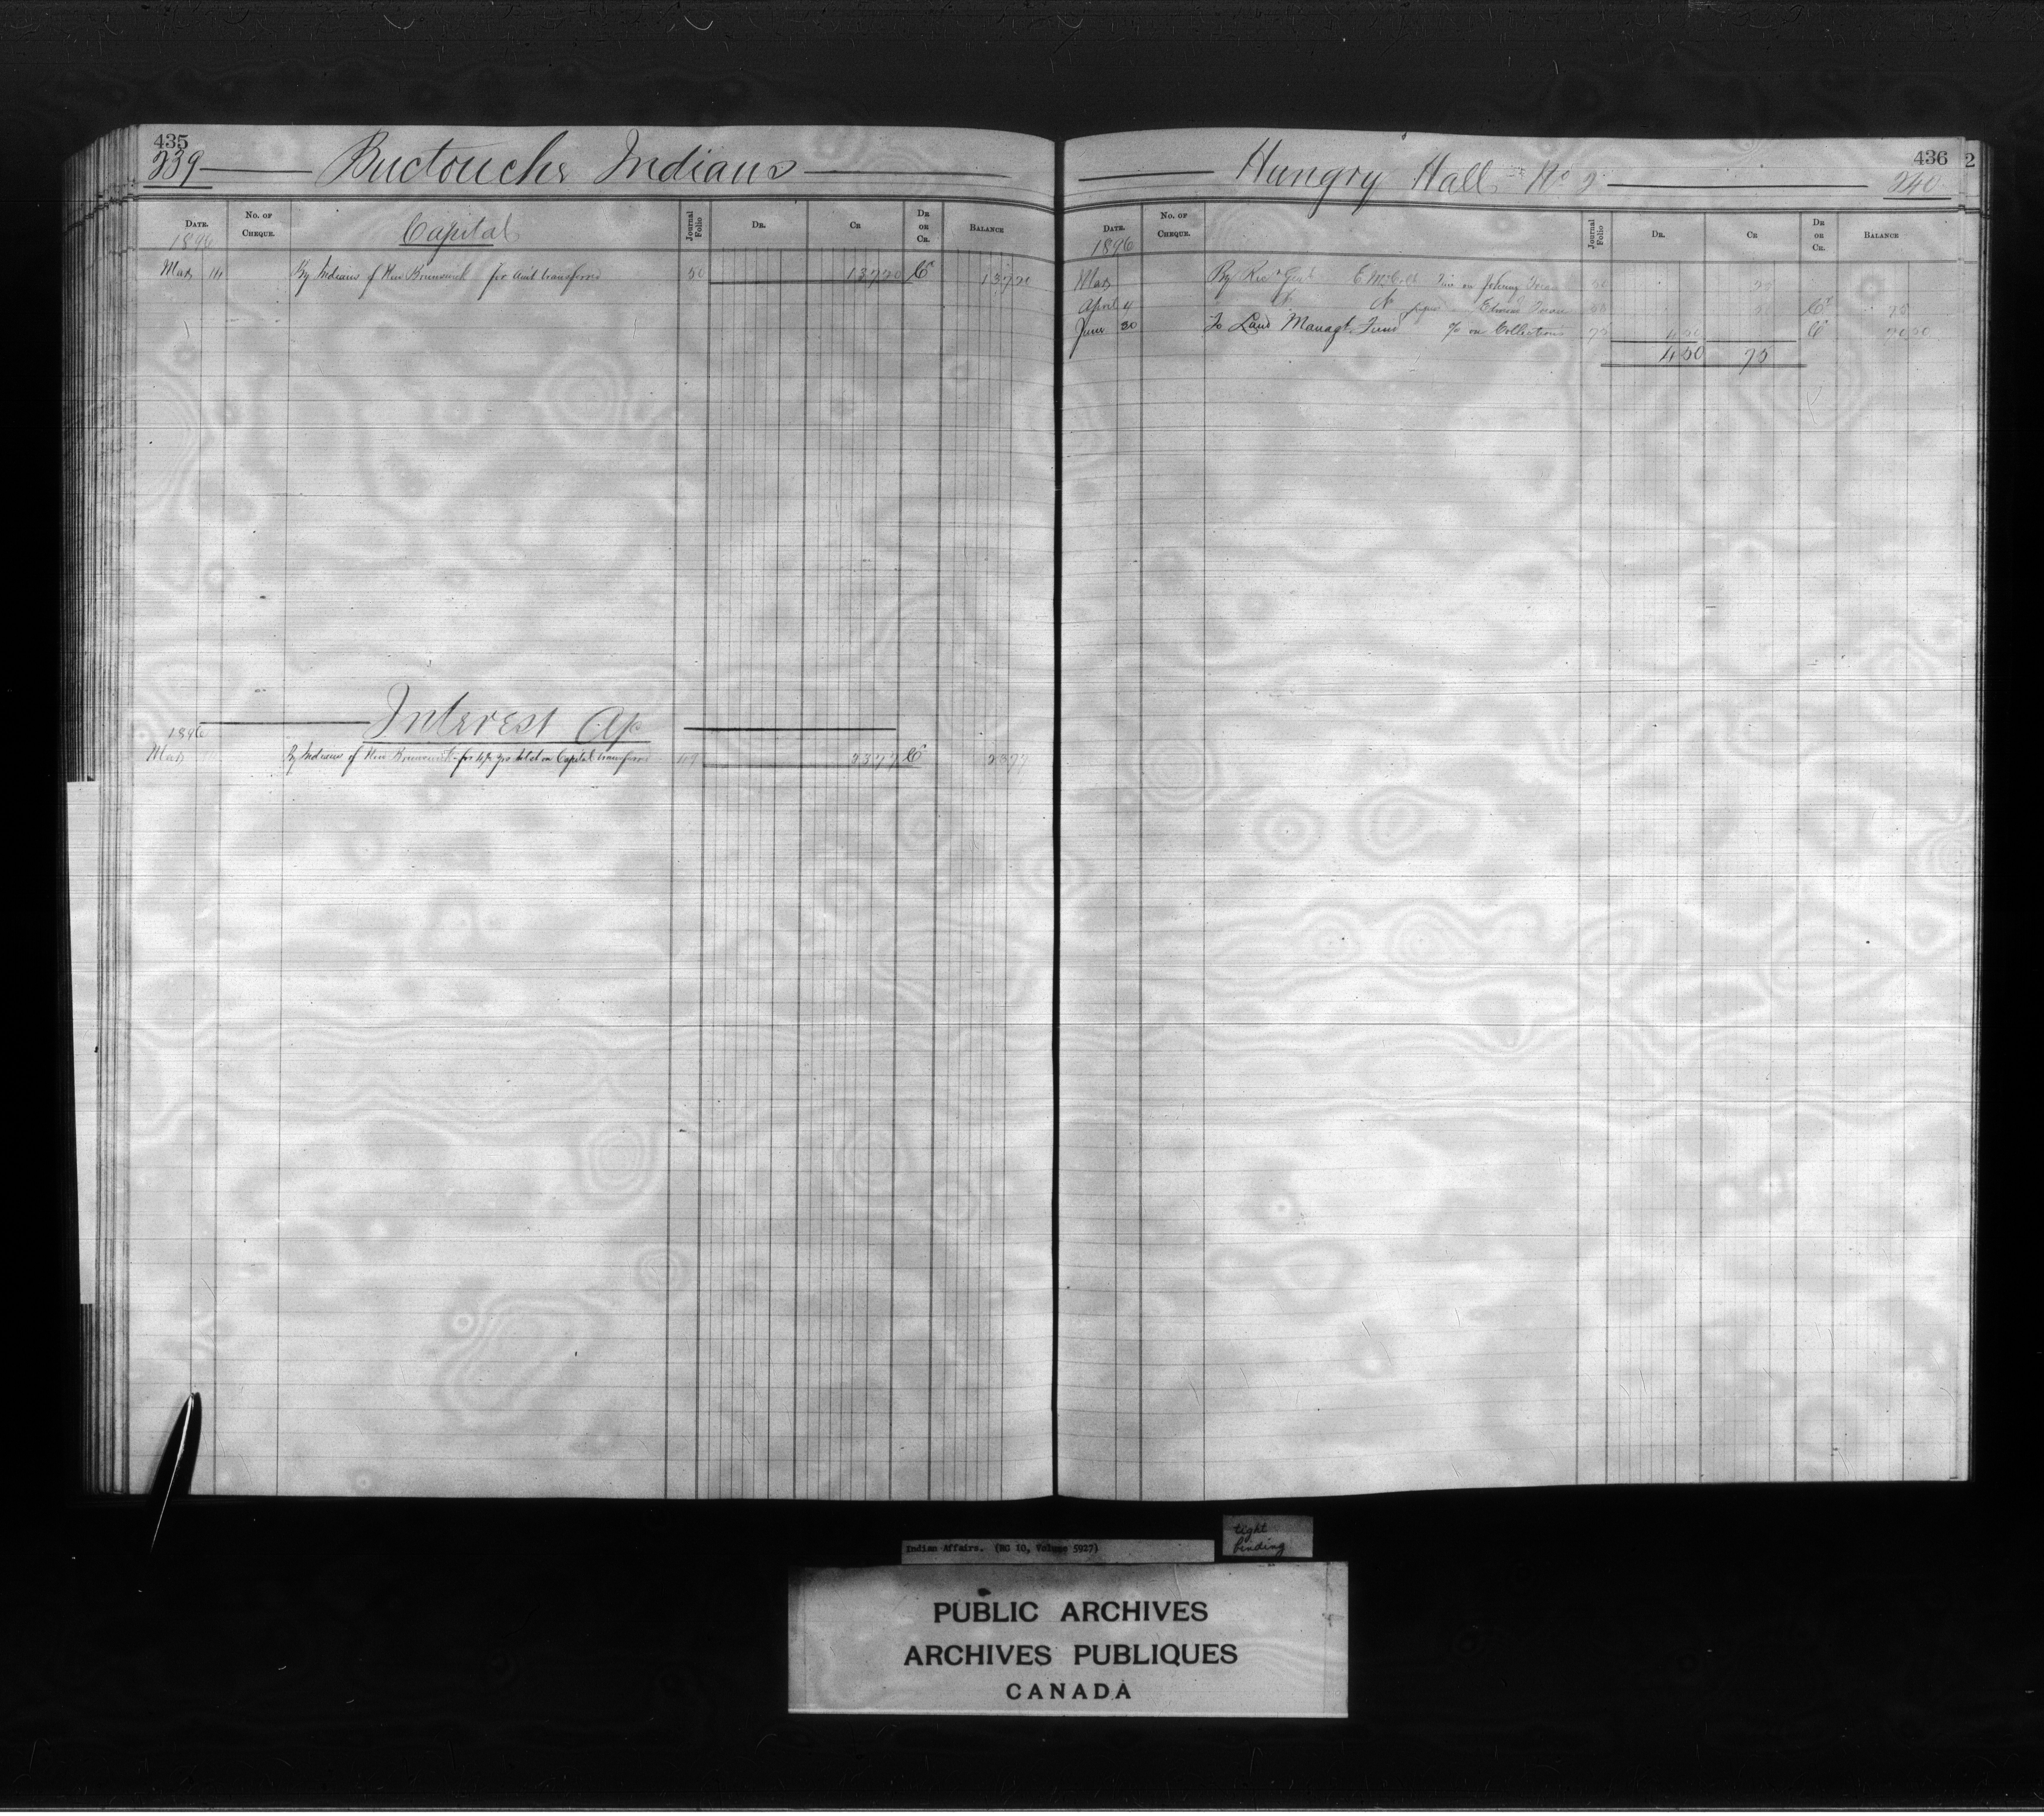 435
239 Buctouche Indians
DATE. No. OF CHEQUE. Capital Journal Folio DR. CR DR OR CR. BALANCE
1896
May 14 By Indians of New Brunswick for amt transferred 50 13720 Cr 13720
Interest a/c
1896
May By Indians of New Brunswick for yrs Int on Capital transferred 2377 Cr 2377
436
Hungry Hall No 2 240
2
DATE. No. OF CHEQUE. Journal Folio DR. CR DR OR CR. BALANCE
1896
May By Rec Genl E McColl on
April 4 Do Edmund 50 5 Cr 75
June 30 To Land Managt. Fund % on Collections 75 4 50 Cr 70 50
4 50 75
Indian Affairs. (RG 10, Volume 5927)
tight
binding
PUBLIC ARCHIVES
ARCHIVES PUBLIQUES
CANADA